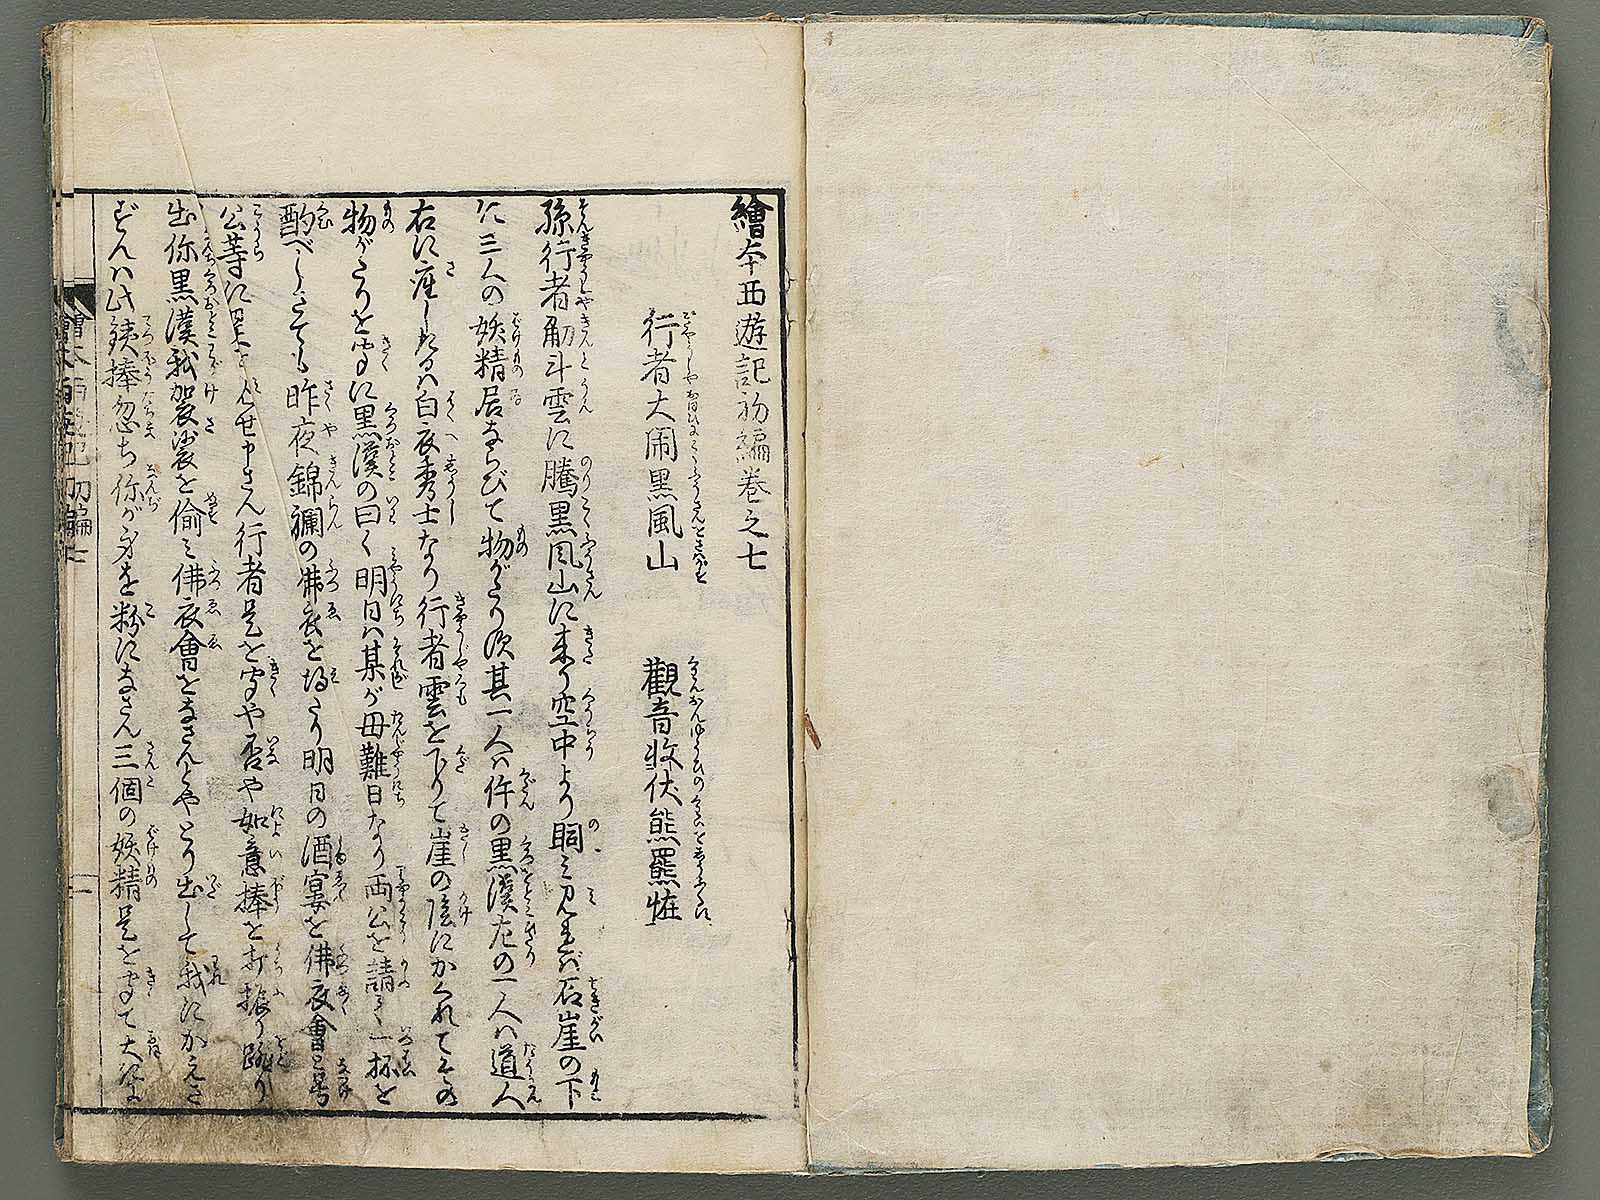 繪本西遊記初編卷之七
行者大閙黒風山　觀音收伏熊羆怪
孫行者觔斗雲に騰黒風山に來り空中より眗み見れば石崖の下
に三人の妖精居ならびて物がたり次其一人は件の黒漢左の一人は道人
右に座したるは白衣秀士なり行者雲を下りて崖の陰にかくれてその
物がたりを聞に黒漢の曰く明日は某が母難日なり両公を請て一杯を
酌べしさても昨夜錦襴の佛衣を得たり明日の酒宴を佛衣會と号
公等に見せ申さん行者是を聞や否や如意棒を打振り跳り
出你黒漢我袈裟を偸み佛衣會をなさんとやとり出して我にかえさ
ずんは此鉄捧忽ち你が身を粉になさん三個の妖精是を聞て大に
繪本西遊記初編七
一